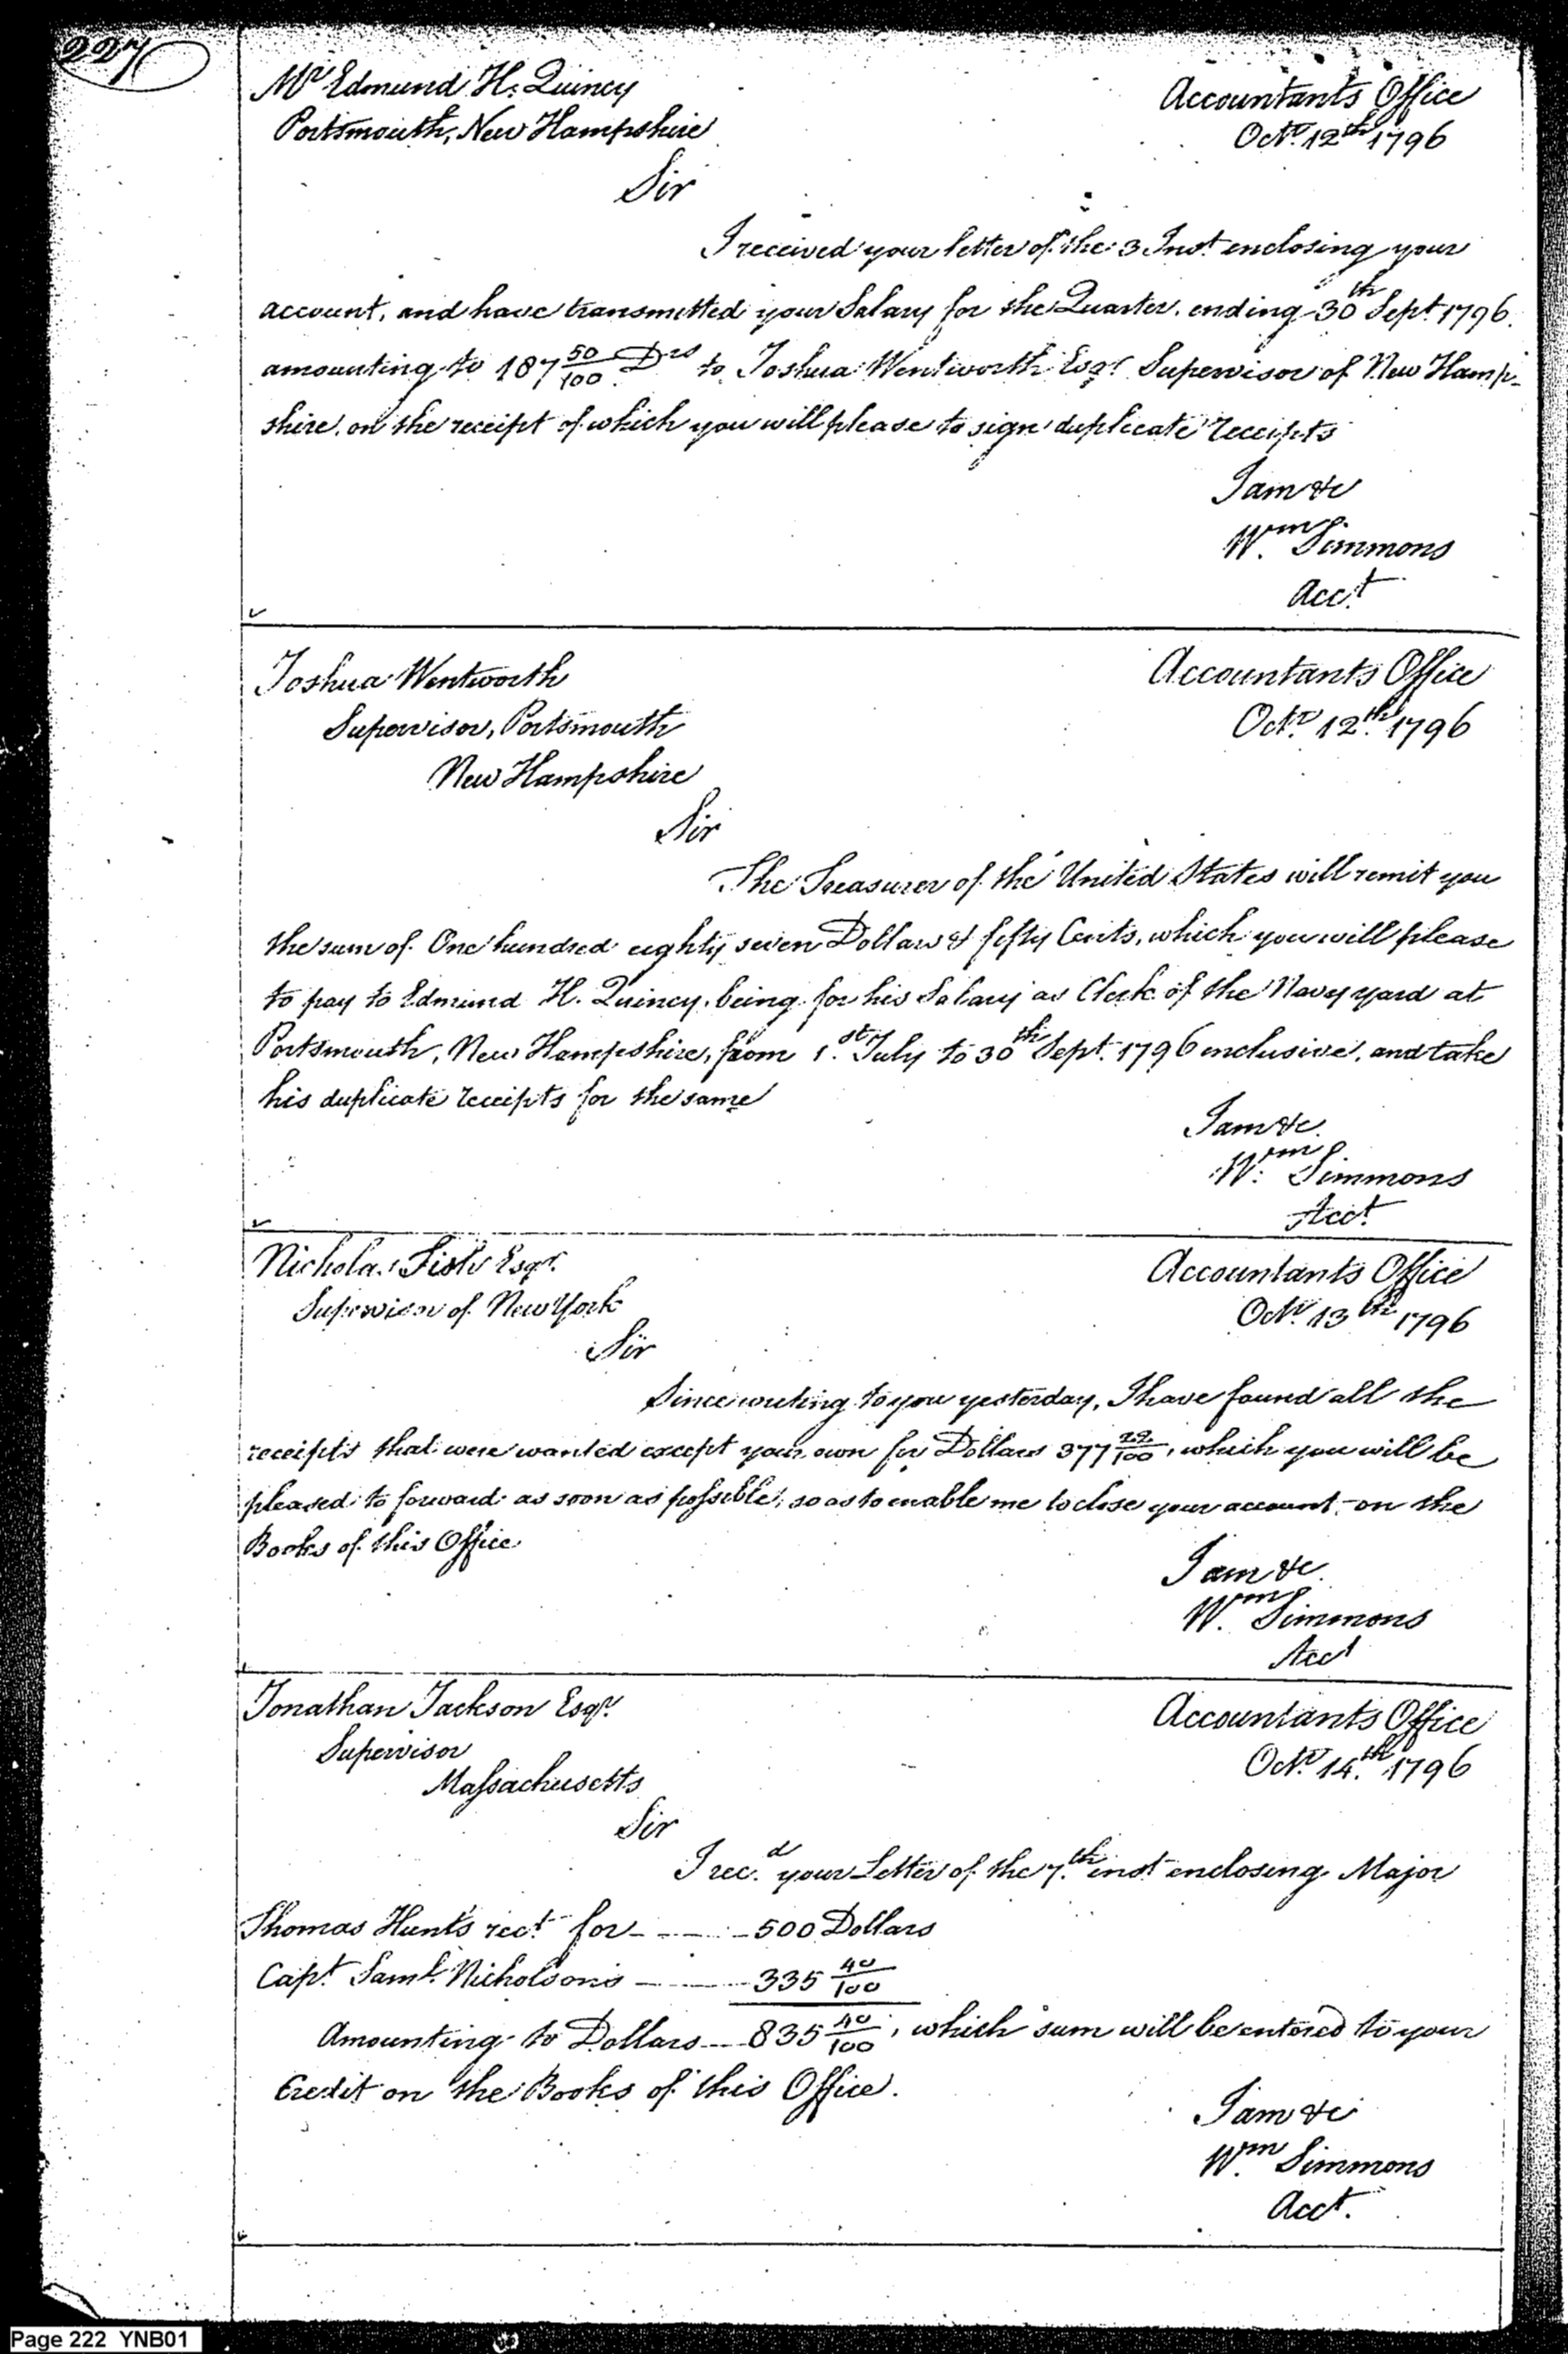 227
Mr Edmund H. Quincy
Portsmouth, New Hampshire
Accountants Office
Octr 12th 1796
Sir
I received your letter of the 3 Inst enclosing your
account, and have transmitted your Salary for the Quarter ending 30th Sept 1796.
amounting to 187 50/100 Drs to Joshua Wentworth Esqr Supervisor of New Hamp-
shire, on the receipt of which you will please to sign duplicate receipts
I am &c
Wm Simmons
Acct
Joshua Wentworth
Supervisor, Portsmouth
New Hampshire
Accountants Office
Octr 12th 1796
Sir
The Treasurer of the United States will remit you
the sum of One hundred eighty seven Dollars & fifty Cents, which you will please
to pay to Edmund H. Quincy, being for his Salary as Clerk of the Navy yard at
Portsmouth, New Hampshire, from 1st July to 30th Sept. 1796 inclusive, and take
his duplicate receipts for the same
I am &c.
Wm Simmons
Acct
Nicholas Fish Esqr.
Supervisor of New York
Accountants Office
Octr 13th 1796
Sir
Since writing to you yesterday, I have found all the
receipts that were wanted except your own for Dollars 377 22/100, which you will be
pleased to forward as soon as possible, so as to enable me to close your account on the
Books of this Office
I am &c.
Wm Simmons
Acct
Jonathan Jackson Esqr.
Supervisor
Massachusetts
Accountants Office
Octr 14th 1796
Sir
I recd your Letter of the 7th inst enclosing Major
Thomas Hunt's rect for - - - - 500 Dollars
Capt Saml Nicholson's - - - - 335 40/100
Amounting to Dollars - - - 835 40/100, which sum will be entered to your
Credit on the Books of this Office.
I am &c
Wm Simmons
Acct.
Page 222 YNB01